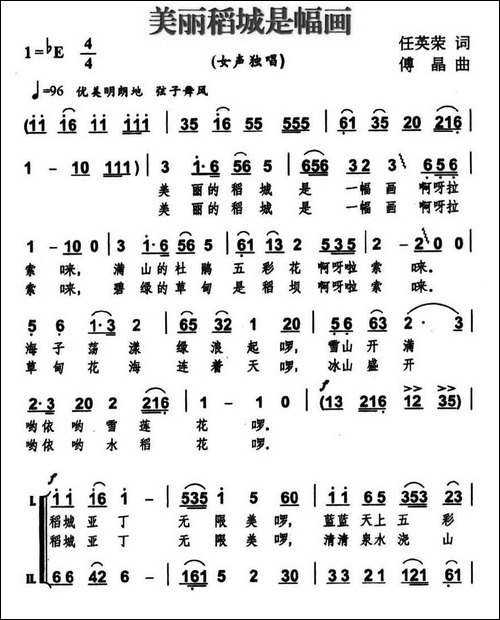 美丽稻城是幅画
1=♭E 4/4 (女声独唱) 任英荣 词
傅晶 曲
♩=96 优美明朗地 弦子舞风
(i i i 6 i i i i i | 1 6 3 5 5 5 5 5 5 | 6 1 3 5 2 0 2 1 6 |
1 - 1 0 1 1 1) | 3 i·6 5 6 5 | 6 5 6 3 2 3 | 6·5 6 |
美丽的稻城是一幅画 啊呀拉
美丽的稻城是一幅画 啊呀拉
1 - 1 0 0 | 3 i·6 5 6 5 | 6 1 1 3 2 5 3 5 | 2 - 2 0 0 |
索咪, 满山的杜鹃五彩花 啊呀啦索咪。
索咪, 碧绿的草甸是稻坝 啊呀啦索咪。
5 6 1·3 2 | 6 5 3 2 1 2 0 | 5·6 6 3 2· 3 |
海子荡漾绿浪起啰, 雪山开满
草甸花海连着天啰, 冰山盛开
2·3 2 0 2 2 1 6 | 1 - 1 0 | f (1 3 2 1 6 1 2 3 5) |
哟依哟雪莲花啰。
哟依哟水稻花啰。
f
I. i i i 6 i - | 5 3 5 i 5 6 0 | i i i 6 5 3 5 3 2 3 |
稻城亚丁 无限美啰, 蓝蓝天上五彩
稻城亚丁 无限美啰, 清清泉水浇山
II. 6 6 4 2 6 - | 1 6 1 5 2 3 0 | 6 6 6 3 1 6 1 5 6 |